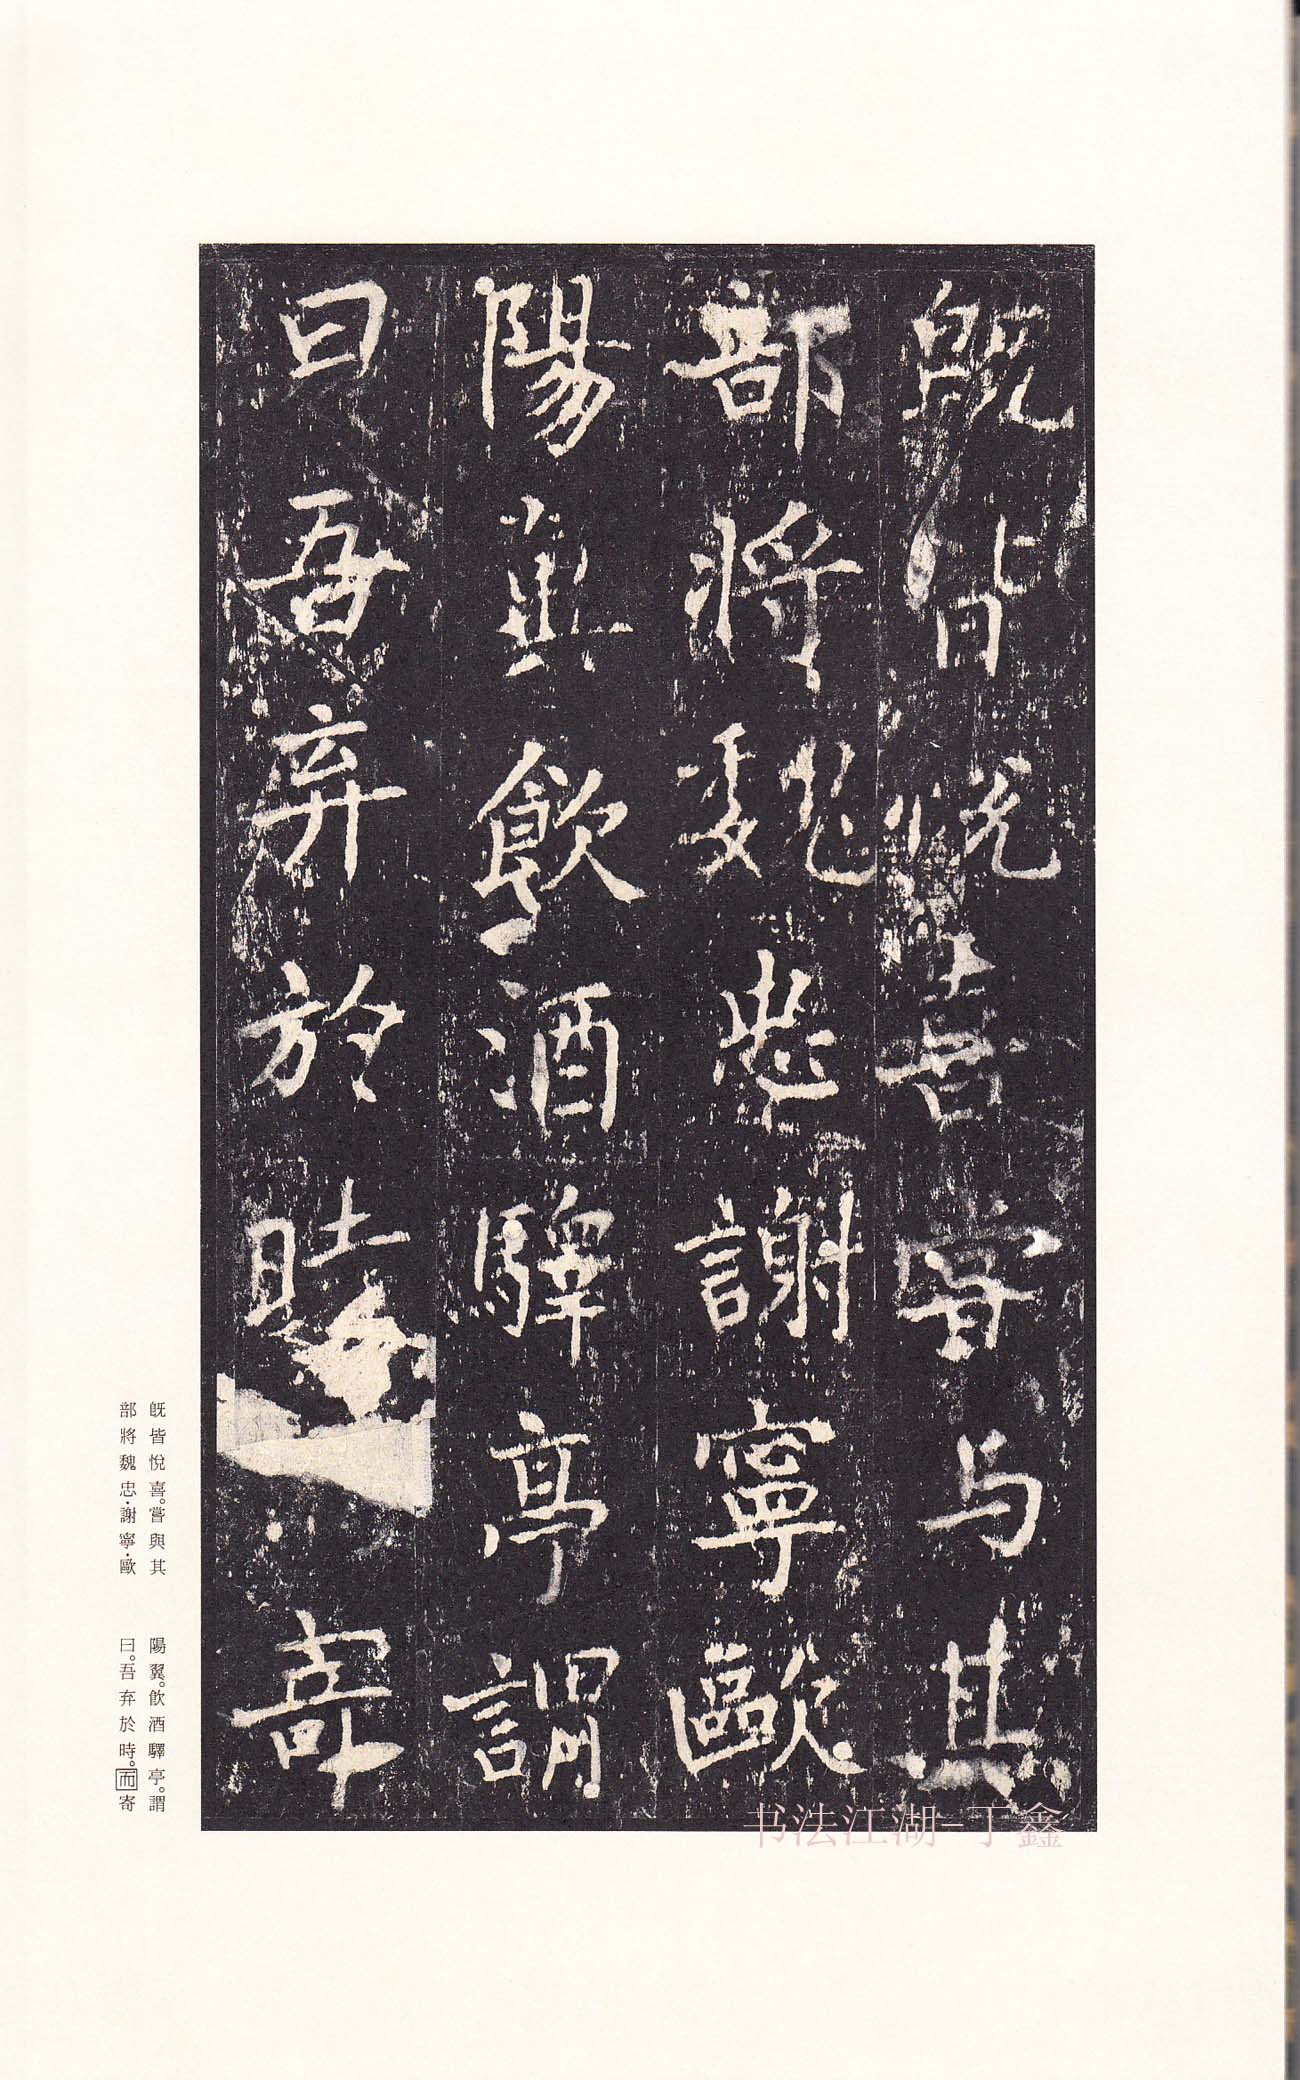 既皆悅喜甞与其
部將魏忠謝寧歐
陽翼飲酒驛亭謂
曰吾弃於時寄
既皆悅喜。嘗與其
部將魏忠·謝寧·歐
陽翼。飮酒驛亭。謂
曰。吾弃於時。而寄
书法江湖-丁鑫